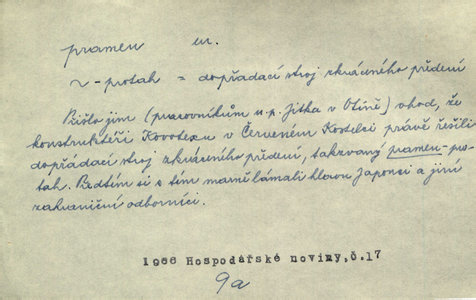 pramen m.
~ - protah = dopřádací stroj zkráceného předení
Přišlo jim (pracovníkům n.p. Jitka v Otíně) vhod, že
konstruktéři Kovotexu v Červeném Kostelci právě řešili
dopřádací stroj zkráceného předení, takzvaný pramen-pro-
tah. Předtím si s tím marně lámali hlavu Japonci a jiní
zahraniční odborníci.
1966 Hospodářské noviny,č.17
9a